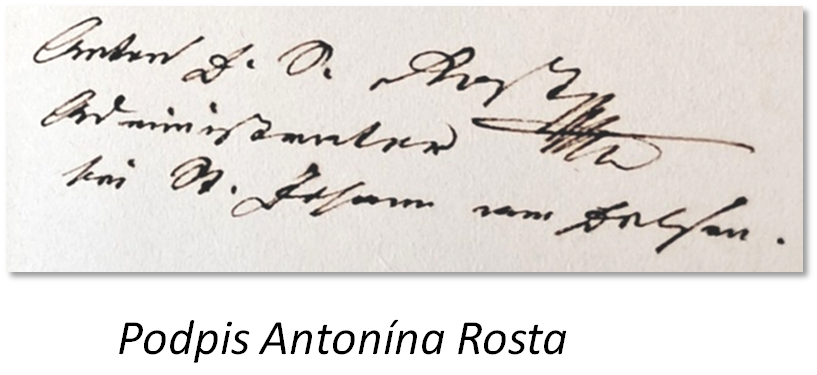 Anton S. Rost
Administrator
bei St. Johann am Felsen.
Podpis Antonína Rosta